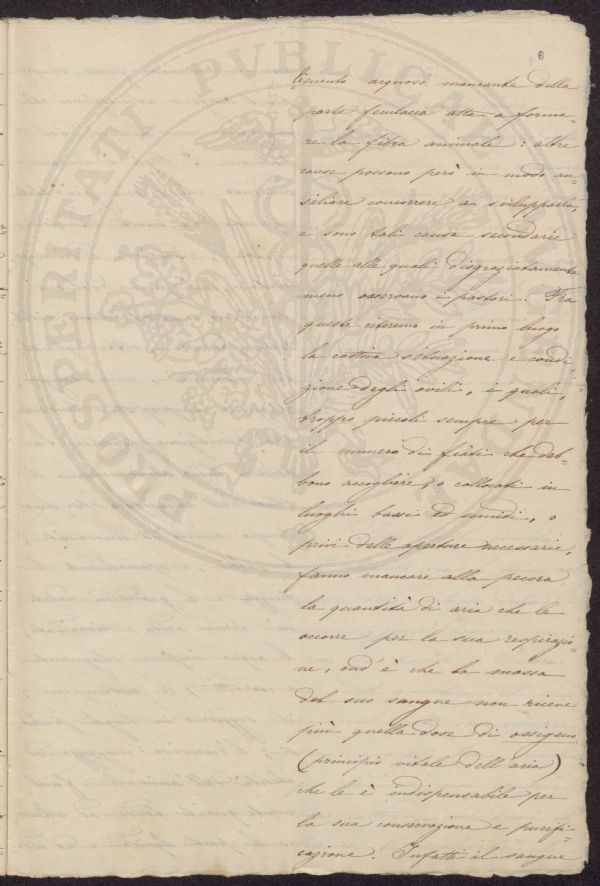 6
limento acquoso mancante della
parte feculacea atta a forma-
re la fibra animale: altre
cause possono però in modo au-
siliare concorrere a svilupparla,
e sono tali cause secondarie
quelle alle quali disgraziatamente
meno osservano i pastori. Fra
queste citeremo in primo luogo
la cattiva situazione e condi-
zione degli ovili, i quali,
troppo piccoli sempre per
il numero di fiati che deb-
bono accogliere, o collocati in
luoghi bassi ed umidi, o
privi delle aperture necessarie,
fanno mancare alla pecora
la quantità di aria che le
occorre per la sua respirazio-
ne, ond'è che la massa
del suo sangue non riceve
più quella dose di ossigeno
(principio vitale dell'aria)
che le è indispensabile per
la sua conservazione e purifi-
cazione. Infatti il sangue
PROSPERITATI PVBLICAE